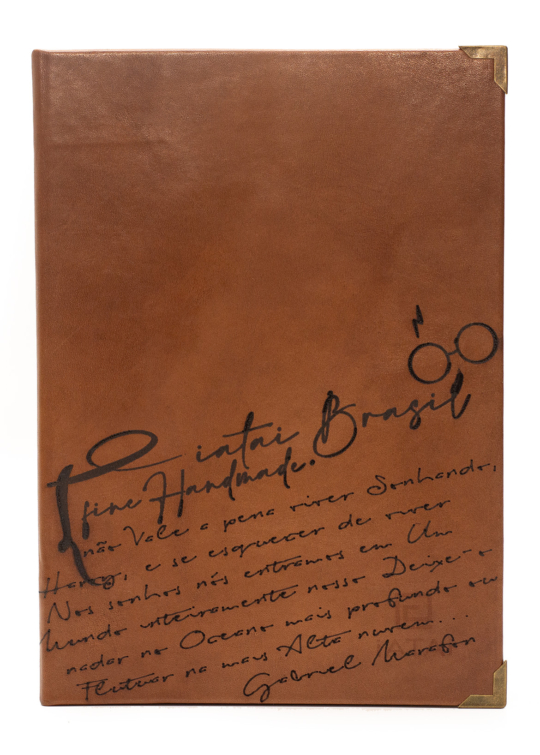 Piatai Brasil
fine Handmade.
não Vale a pena viver Sonhando,
Harry, e se esquecer de viver
Nos sonhos nós entramos em Um
Mundo inteiramente nosso Deixe-o
nadar no Oceano mais profundo ou
Flutuar na mais Alta nuvem...
Gabriel Marafon